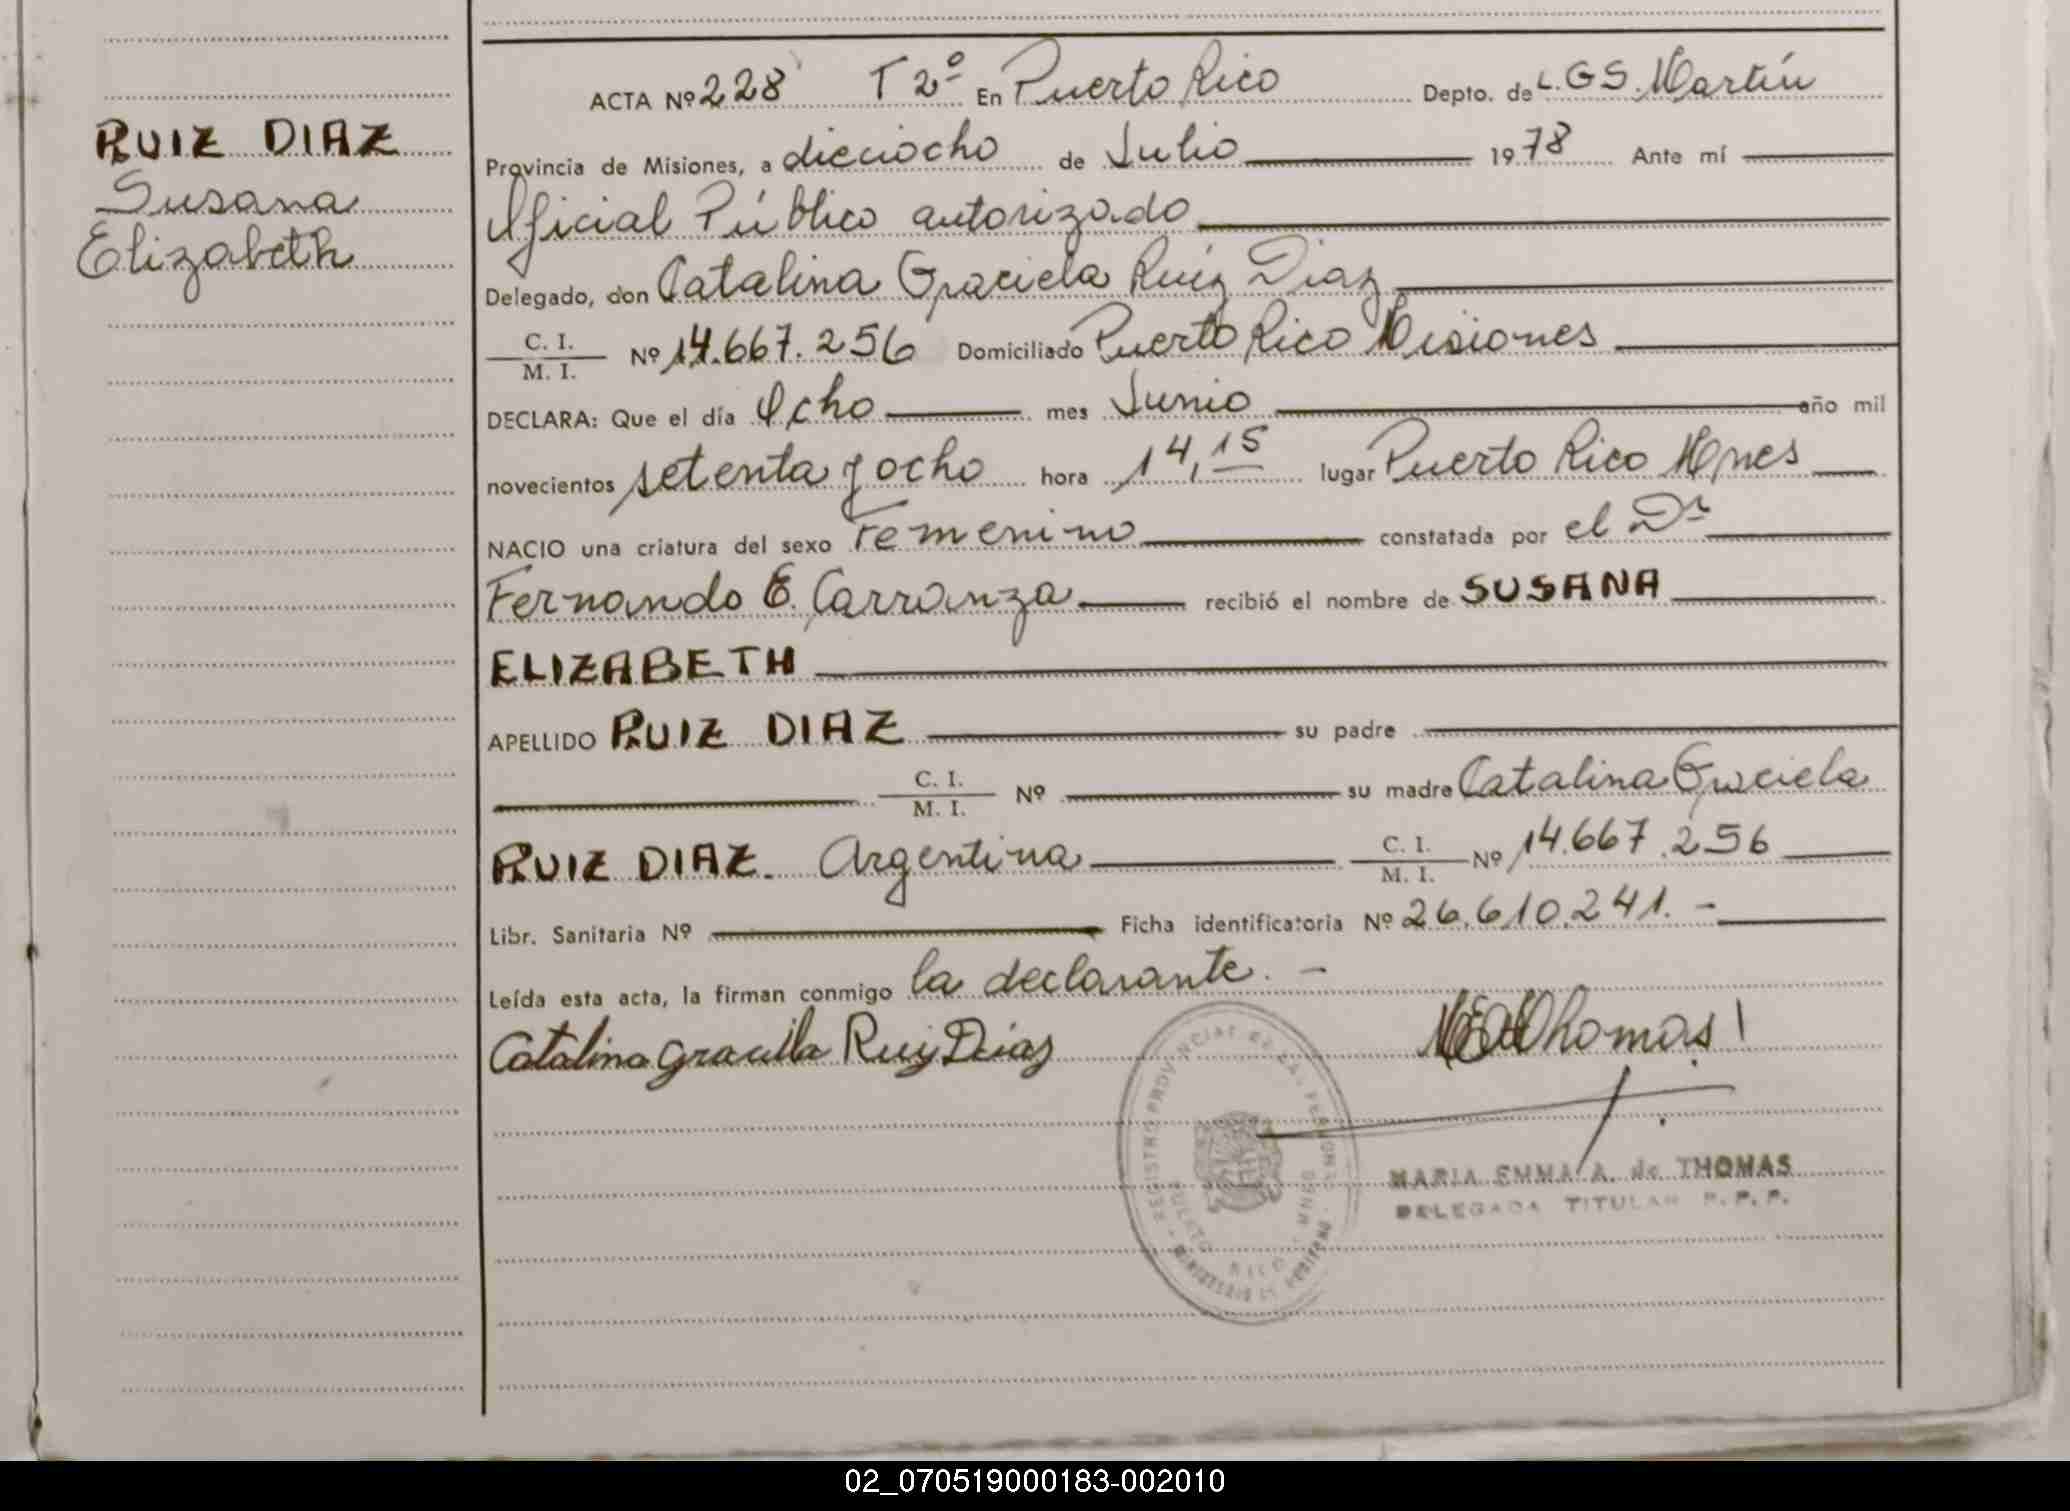 RUIZ DIAZ
Susana
Elizabeth
ACTA Nº 228 T 2º En Puerto Rico Depto. de L.G.S. Martín
Provincia de Misiones, a dieciocho de Julio 1978 Ante mí
Oficial Público autorizado
Delegado, don Catalina Graciela Ruíz Diaz
C. I.
M. I.
Nº 14.667.256 Domiciliado Puerto Rico Misiones
DECLARA: Que el día Ocho mes Junio año mil
novecientos setenta y ocho hora 14,15 lugar Puerto Rico Mnes
NACIO una criatura del sexo Femenino constatada por el Dr
Fernando E. Carranza recibió el nombre de SUSANA
ELIZABETH
APELLIDO RUIZ DIAZ su padre
C. I.
M. I.
Nº su madre Catalina Graciela
RUIZ DIAZ. Argentina C. I.
M. I.
Nº 14.667.256
Libr. Sanitaria Nº Ficha identificatoria Nº 26.610.241.-
Leída esta acta, la firman conmigo la declarante. -
Catalina Graciela Ruiz Diaz
Thomas
REGISTRO PROVINCIAL DE LAS PERSONAS
PUERTO RICO - MNES
MINISTERIO DE GOBIERNO
MARIA EMMA A. de THOMAS
DELEGADA TITULAR R. P. P.
02_070519000183-002010